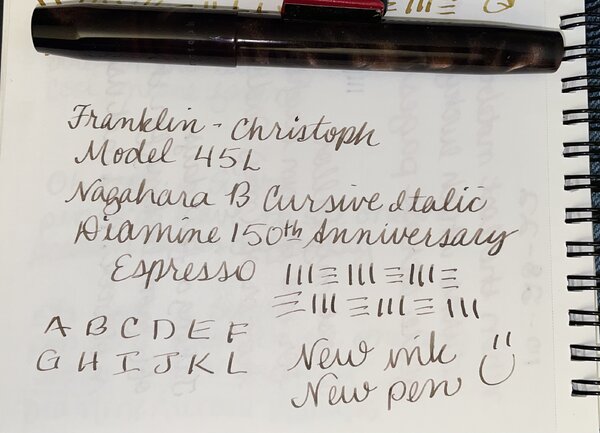 Franklin - Christoph
Model 45L
Nagahara B Cursive Italic
Diamine 150th Anniversary
Espresso
A B C D E F
G H I J K L
New ink
New pen